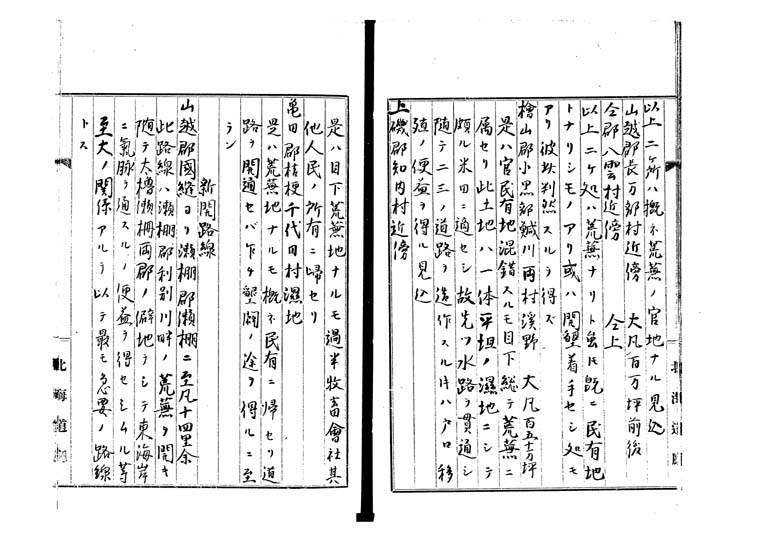 以上二ヶ所ハ概ネ荒蕪ノ官地ナル見込
山越郡長万部村近傍　大凡百万坪前後
仝郡八雲村近傍　仝上
以上二ヶ処ハ荒蕪ナリト雖𪜈既ニ民有地
トナリシモノアリ或ハ開墾着手セシ処モ
アリ彼此判然スルヲ得ズ
檜山郡小黒部鰔川両村溪野　大凡百五十万坪
是ハ官民有地混錯スルモ目下総テ荒蕪ニ
属セリ此土地ハ一体平坦ノ濕地ニシテ
頗ル米田ニ適セシ故先ツ水路ヲ貫通シ
随テ二三ノ道路ヲ造作スル片ハ戸口移
殖ノ便益ヲ得ル見込
上磯郡知内村近傍
是ハ目下荒蕪地ナルモ過半牧畜會社其
他人民ノ所有ニ歸セリ
亀田郡桔梗千代田村濕地
是ハ荒蕪地ナルモ概ネ民有ニ帰セリ道
路ヲ開通セバ乍チ墾闢ノ途ヲ得ルニ至
ラン
新開路線
山越郡國縫ヨリ瀬棚郡瀬棚ニ至凡十四里余
此路線ハ瀬棚郡利別川畔ノ荒蕪ヲ開キ
随テ太櫓瀬棚両郡ノ僻地ヲシテ東海岸
ニ氣脉ヲ通スルノ便益ヲ得セシムル等
至大ノ関係アルヲ以テ最モ急要ノ路線
トス
北海道